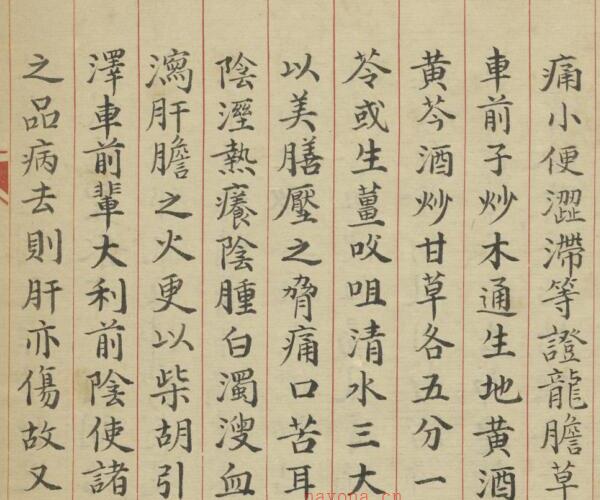 痛小便澀滯等證龍膽草
車前子炒木通生地黄酒
黄芩酒炒甘草各五分一
苓或生薑㕮咀清水三大
以美膳壓之脅痛口苦耳
陰溼熱癢陰腫白濁溲血
瀉肝膽之火更以柴胡引
澤車前輩大利前陰使諸
之品病去則肝亦傷故又
nayona.cn